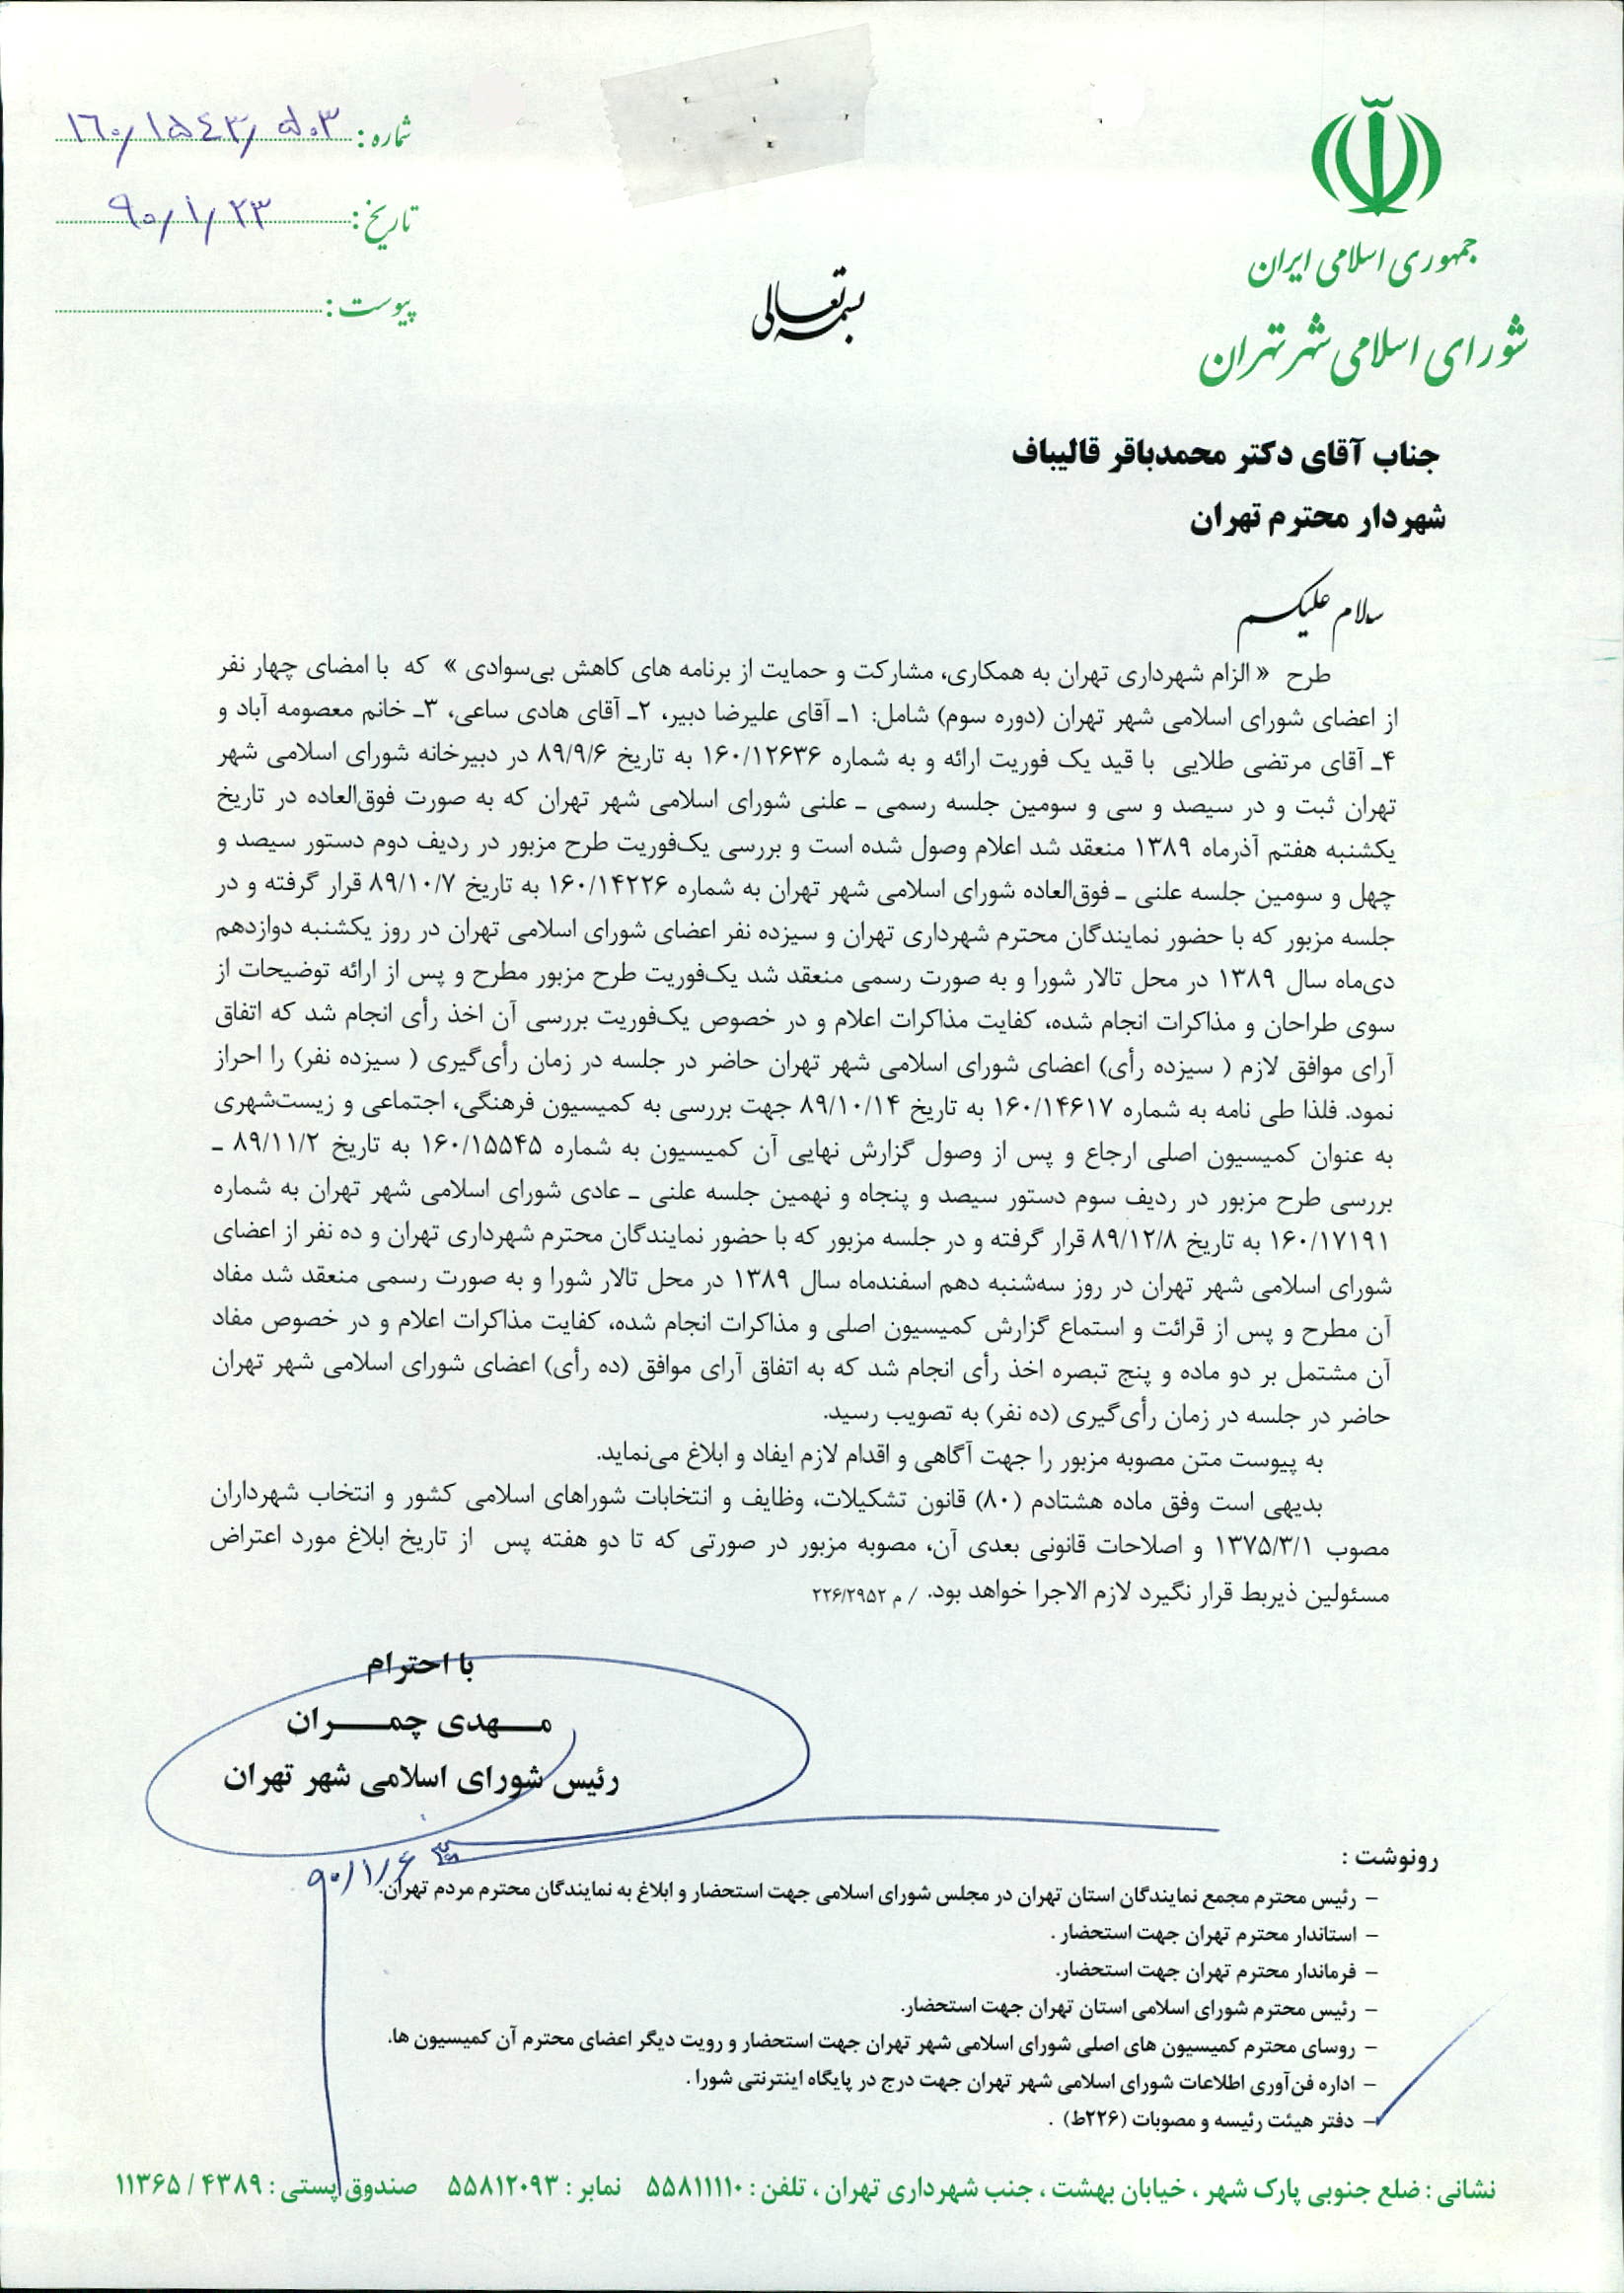 جمهوری اسلامی ایران
شورای اسلامی شهر تهران
شماره : ۱۶۰/۱۵۴۳/۵۰۳
تاریخ : ۹۰/۱/۲۳
پیوست :
بسمه تعالی
جناب آقای دکتر محمدباقر قالیباف
شهردار محترم تهران
سلام علیکم
طرح « الزام شهرداری تهران به همکاری، مشارکت و حمایت از برنامه های کاهش بی‌سوادی » که با امضای چهار نفر
از اعضای شورای اسلامی شهر تهران (دوره سوم) شامل: ۱ـ آقای علیرضا دبیر، ۲ـ آقای هادی ساعی، ۳ـ خانم معصومه آباد و
۴ـ آقای مرتضی طلایی با قید یک فوریت ارائه و به شماره ۱۶۰/۱۲۶۳۶ به تاریخ ۸۹/۹/۶ در دبیرخانه شورای اسلامی شهر
تهران ثبت و در سیصد و سی و سومین جلسه رسمی ـ علنی شورای اسلامی شهر تهران که به صورت فوق‌العاده در تاریخ
یکشنبه هفتم آذرماه ۱۳۸۹ منعقد شد اعلام وصول شده است و بررسی یک‌فوریت طرح مزبور در ردیف دوم دستور سیصد و
چهل و سومین جلسه علنی ـ فوق‌العاده شورای اسلامی شهر تهران به شماره ۱۶۰/۱۴۲۲۶ به تاریخ ۸۹/۱۰/۷ قرار گرفته و در
جلسه مزبور که با حضور نمایندگان محترم شهرداری تهران و سیزده نفر اعضای شورای اسلامی تهران در روز یکشنبه دوازدهم
دی‌ماه سال ۱۳۸۹ در محل تالار شورا و به صورت رسمی منعقد شد یک‌فوریت طرح مزبور مطرح و پس از ارائه توضیحات از
سوی طراحان و مذاکرات انجام شده، کفایت مذاکرات اعلام و در خصوص یک‌فوریت بررسی آن اخذ رأی انجام شد که اتفاق
آرای موافق لازم ( سیزده رأی) اعضای شورای اسلامی شهر تهران حاضر در جلسه در زمان رأی‌گیری ( سیزده نفر) را احراز
نمود. فلذا طی نامه به شماره ۱۶۰/۱۴۶۱۷ به تاریخ ۸۹/۱۰/۱۴ جهت بررسی به کمیسیون فرهنگی، اجتماعی و زیست‌شهری
به عنوان کمیسیون اصلی ارجاع و پس از وصول گزارش نهایی آن کمیسیون به شماره ۱۶۰/۱۵۵۴۵ به تاریخ ۸۹/۱۱/۲ ـ
بررسی طرح مزبور در ردیف سوم دستور سیصد و پنجاه و نهمین جلسه علنی ـ عادی شورای اسلامی شهر تهران به شماره
۱۶۰/۱۷۱۹۱ به تاریخ ۸۹/۱۲/۸ قرار گرفته و در جلسه مزبور که با حضور نمایندگان محترم شهرداری تهران و ده نفر از اعضای
شورای اسلامی شهر تهران در روز سه‌شنبه دهم اسفندماه سال ۱۳۸۹ در محل تالار شورا و به صورت رسمی منعقد شد مفاد
آن مطرح و پس از قرائت و استماع گزارش کمیسیون اصلی و مذاکرات انجام شده، کفایت مذاکرات اعلام و در خصوص مفاد
آن مشتمل بر دو ماده و پنج تبصره اخذ رأی انجام شد که به اتفاق آرای موافق (ده رأی) اعضای شورای اسلامی شهر تهران
حاضر در جلسه در زمان رأی‌گیری (ده نفر) به تصویب رسید.
به پیوست متن مصوبه مزبور را جهت آگاهی و اقدام لازم ایفاد و ابلاغ می‌نماید.
بدیهی است وفق ماده هشتادم (۸۰) قانون تشکیلات، وظایف و انتخابات شوراهای اسلامی کشور و انتخاب شهرداران
مصوب ۱۳۷۵/۳/۱ و اصلاحات قانونی بعدی آن، مصوبه مزبور در صورتی که تا دو هفته پس از تاریخ ابلاغ مورد اعتراض
مسئولین ذیربط قرار نگیرد لازم الاجرا خواهد بود. / م ۲۲۶/۲۹۵۲
با احترام
مـــهدی چمـــــران
رئیس شورای اسلامی شهر تهران
۹۰/۱/۶
رونوشت :
– رئیس محترم مجمع نمایندگان استان تهران در مجلس شورای اسلامی جهت استحضار و ابلاغ به نمایندگان محترم مردم تهران.
– استاندار محترم تهران جهت استحضار .
– فرماندار محترم تهران جهت استحضار.
– رئیس محترم شورای اسلامی استان تهران جهت استحضار.
– روسای محترم کمیسیون های اصلی شورای اسلامی شهر تهران جهت استحضار و رویت دیگر اعضای محترم آن کمیسیون ها.
– اداره فن‌آوری اطلاعات شورای اسلامی شهر تهران جهت درج در پایگاه اینترنتی شورا .
– دفتر هیئت رئیسه و مصوبات (۲۲۶ط) .
نشانی : ضلع جنوبی پارک شهر ، خیابان بهشت ، جنب شهرداری تهران ، تلفن : ۵۵۸۱۱۱۱۰ نمابر : ۵۵۸۱۲۰۹۳ صندوق پستی : ۴۳۸۹ / ۱۱۳۶۵